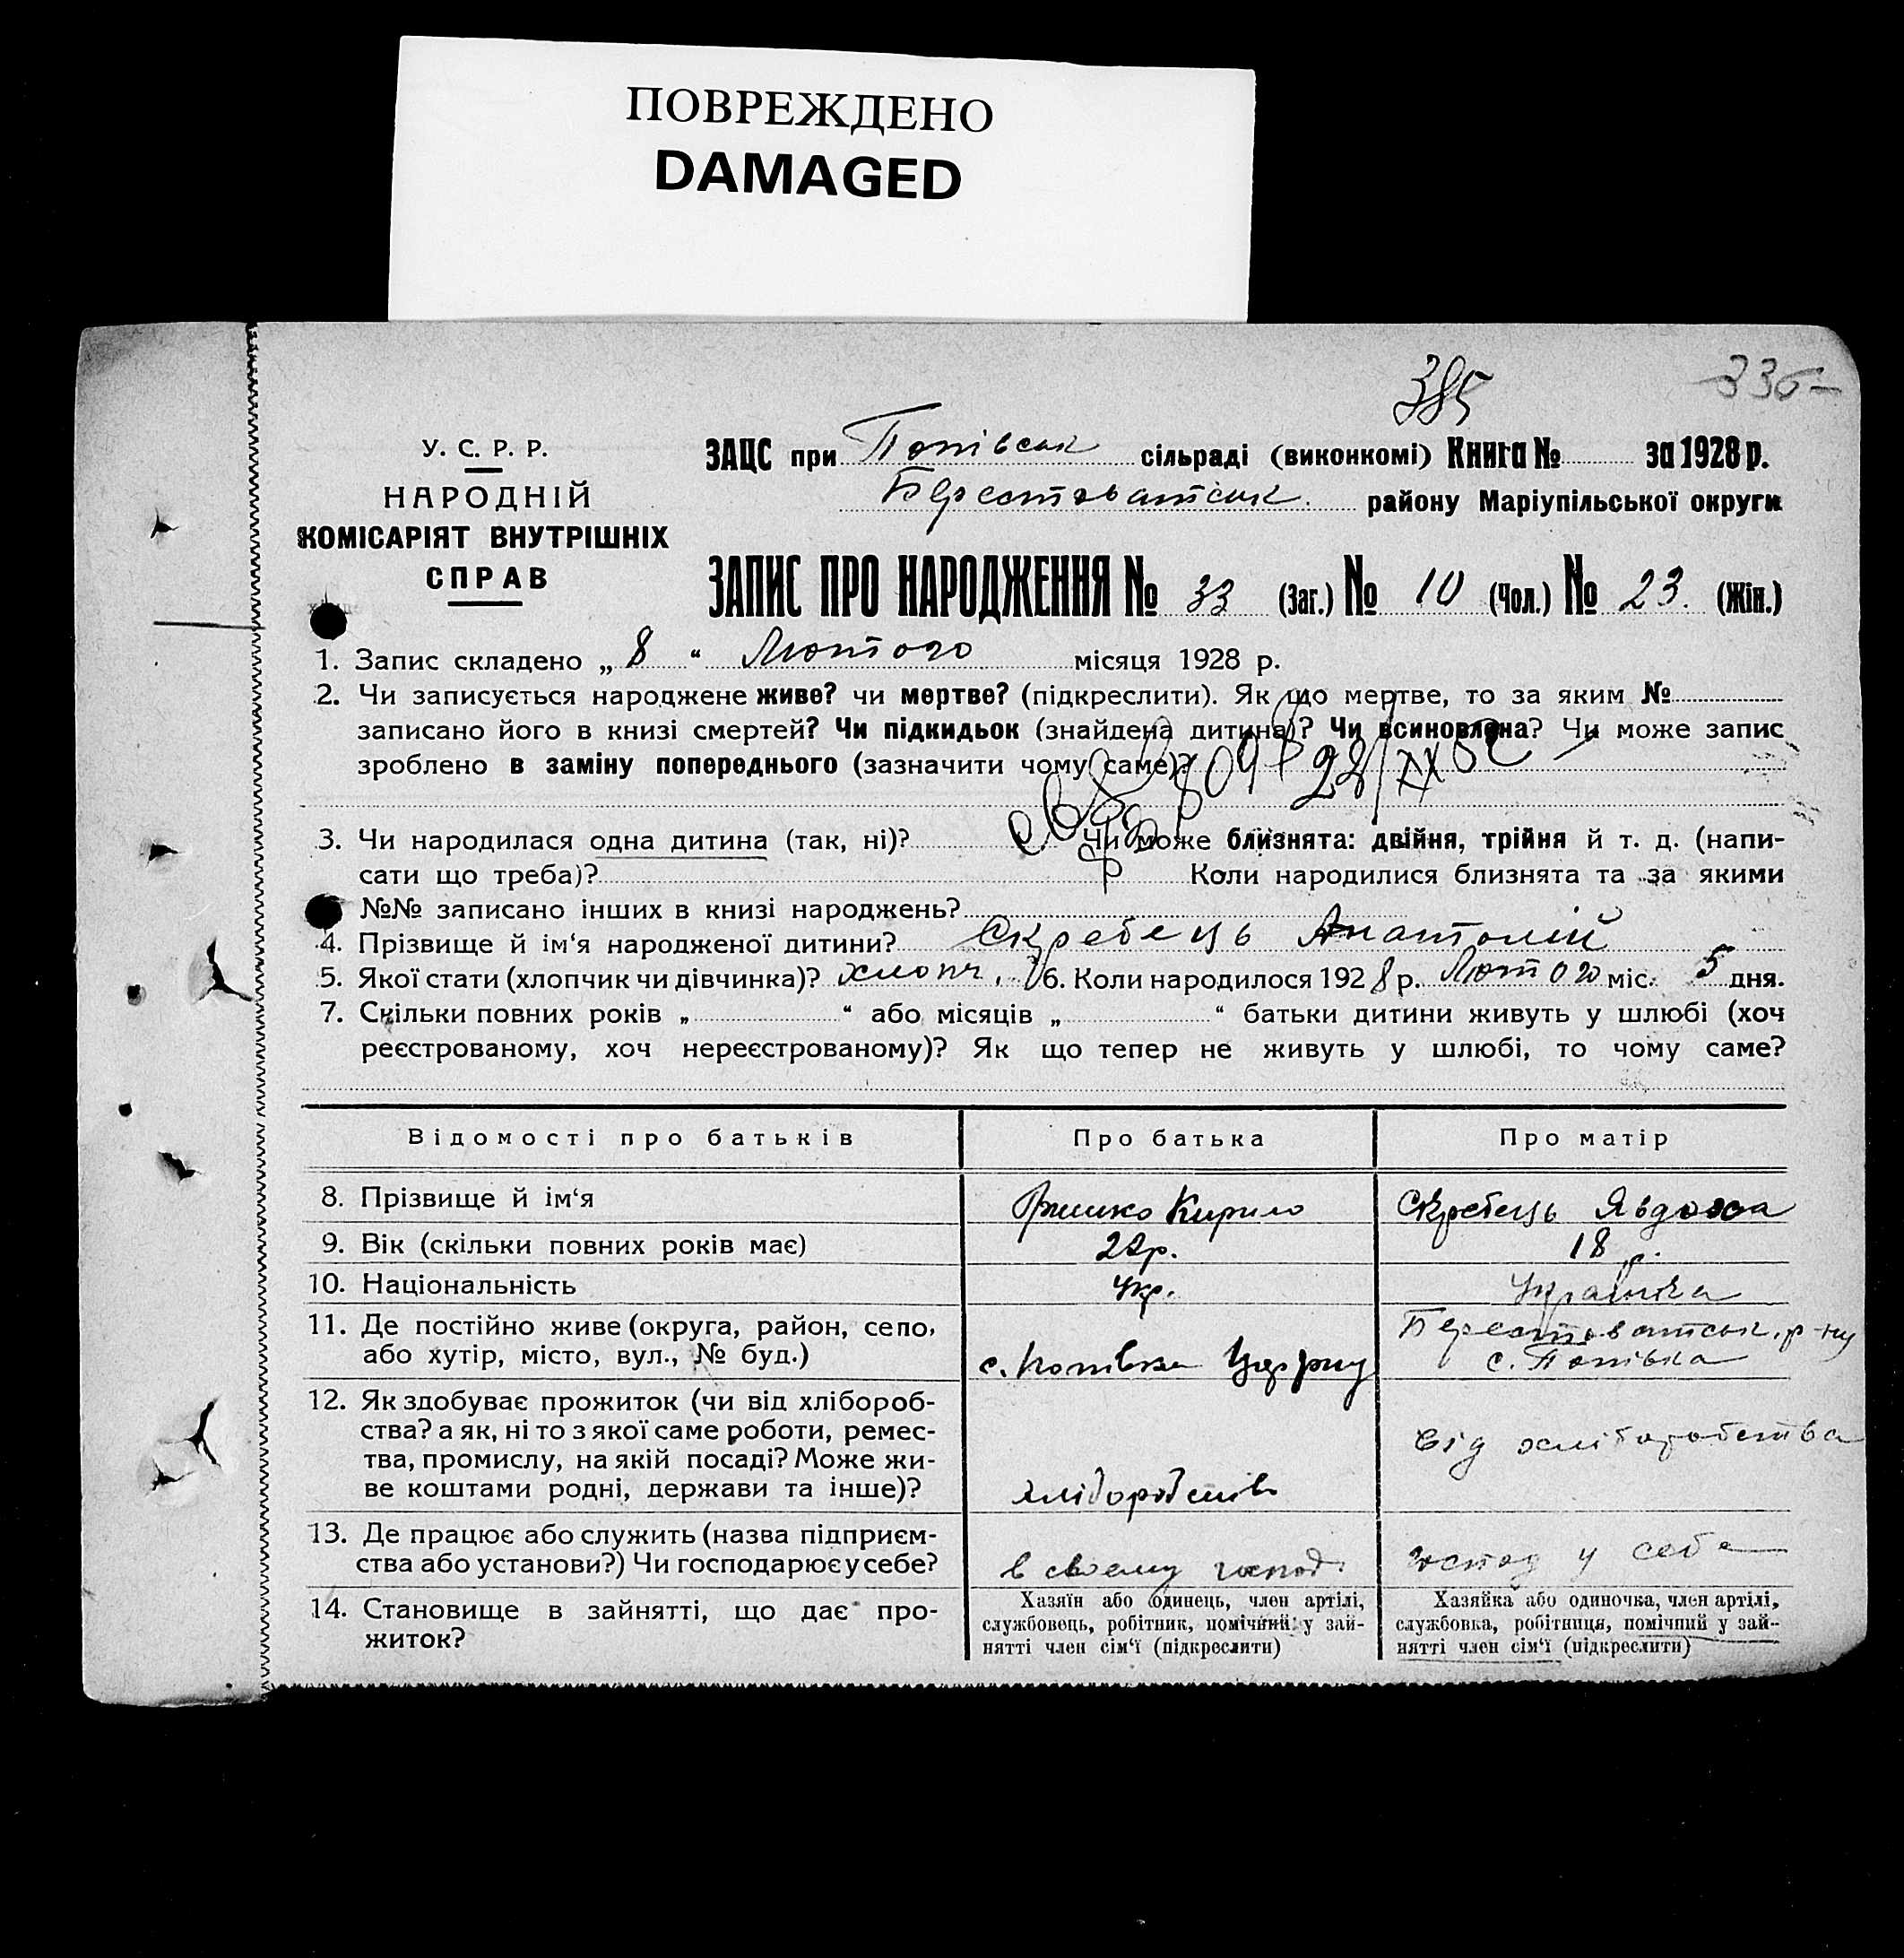 ПОВРЕЖДЕНО
DAMAGED
385
336
У. С. Р. Р.
НАРОДНІЙ
КОМІСАРІЯТ ВНУТРІШНІХ
СПРАВ
ЗАЦС при Попівськ сільраді (виконкомі) Книга № за 1928 р.
Берестоватськ. району Маріупільської округи
ЗАПИС ПРО НАРОДЖЕННЯ № 33 (Заг.) № 10 (Чол.) № 23. (Жін.)
1. Запис складено „ 8 “ Лютого місяця 1928 р.
2. Чи записується народжене живе? чи мертве? (підкреслити). Як що мертве, то за яким №
записано його в книзі смертей? Чи підкидьок (знайдена дитина)? Чи всиновлена? Чи може запис
зроблено в заміну попереднього (зазначити чому саме)?
3. Чи народилася одна дитина (так, ні)? Чи може близнята: двійня, трійня й т. д. (напи-
сати що треба)? Коли народилися близнята та за якими
№№ записано інших в книзі народжень?
4. Прізвище й ім‘я народженої дитини? Скребець Анатолій
5. Якої стати (хлопчик чи дівчинка)? хлопч. 6. Коли народилося 1928 р. Лютого міс. 5 дня.
7. Скільки повних років „ “ або місяців „ “ батьки дитини живуть у шлюбі (хоч
реєстрованому, хоч нереєстрованому)? Як що тепер не живуть у шлюбі, то чому саме?
Відомості про батьків Про батька Про матір
8. Прізвище й ім‘я Кирило Скребець Явдоха
9. Вік (скільки повних років має) 22р. 18 р.
10. Національність Укр. Українка
11. Де постійно живе (округа, район, село, Берестоватськ. р-ну
або хутір, місто, вул., № буд.) с. Попівка с. Попівка
12. Як здобуває прожиток (чи від хлібороб-
ства? а як, ні то з якої саме роботи, ремес- Від хліборобства
тва, промислу, на якій посаді? Може жи-
ве коштами родні, держави та інше)? хліборобств
13. Де працює або служить (назва підприєм-
ства або установи?) Чи господарює у себе? в своєму господ. господ у себе
14. Становище в зайнятті, що дає про-
житок?
Хазяїн або одинець, член артілі,
службовець, робітник, помічний у зай-
нятті член сім‘ї (підкреслити)
Хазяйка або одиночка, член артілі,
службовка, робітниця, помічний у зай-
нятті член сім‘ї (підкреслити)